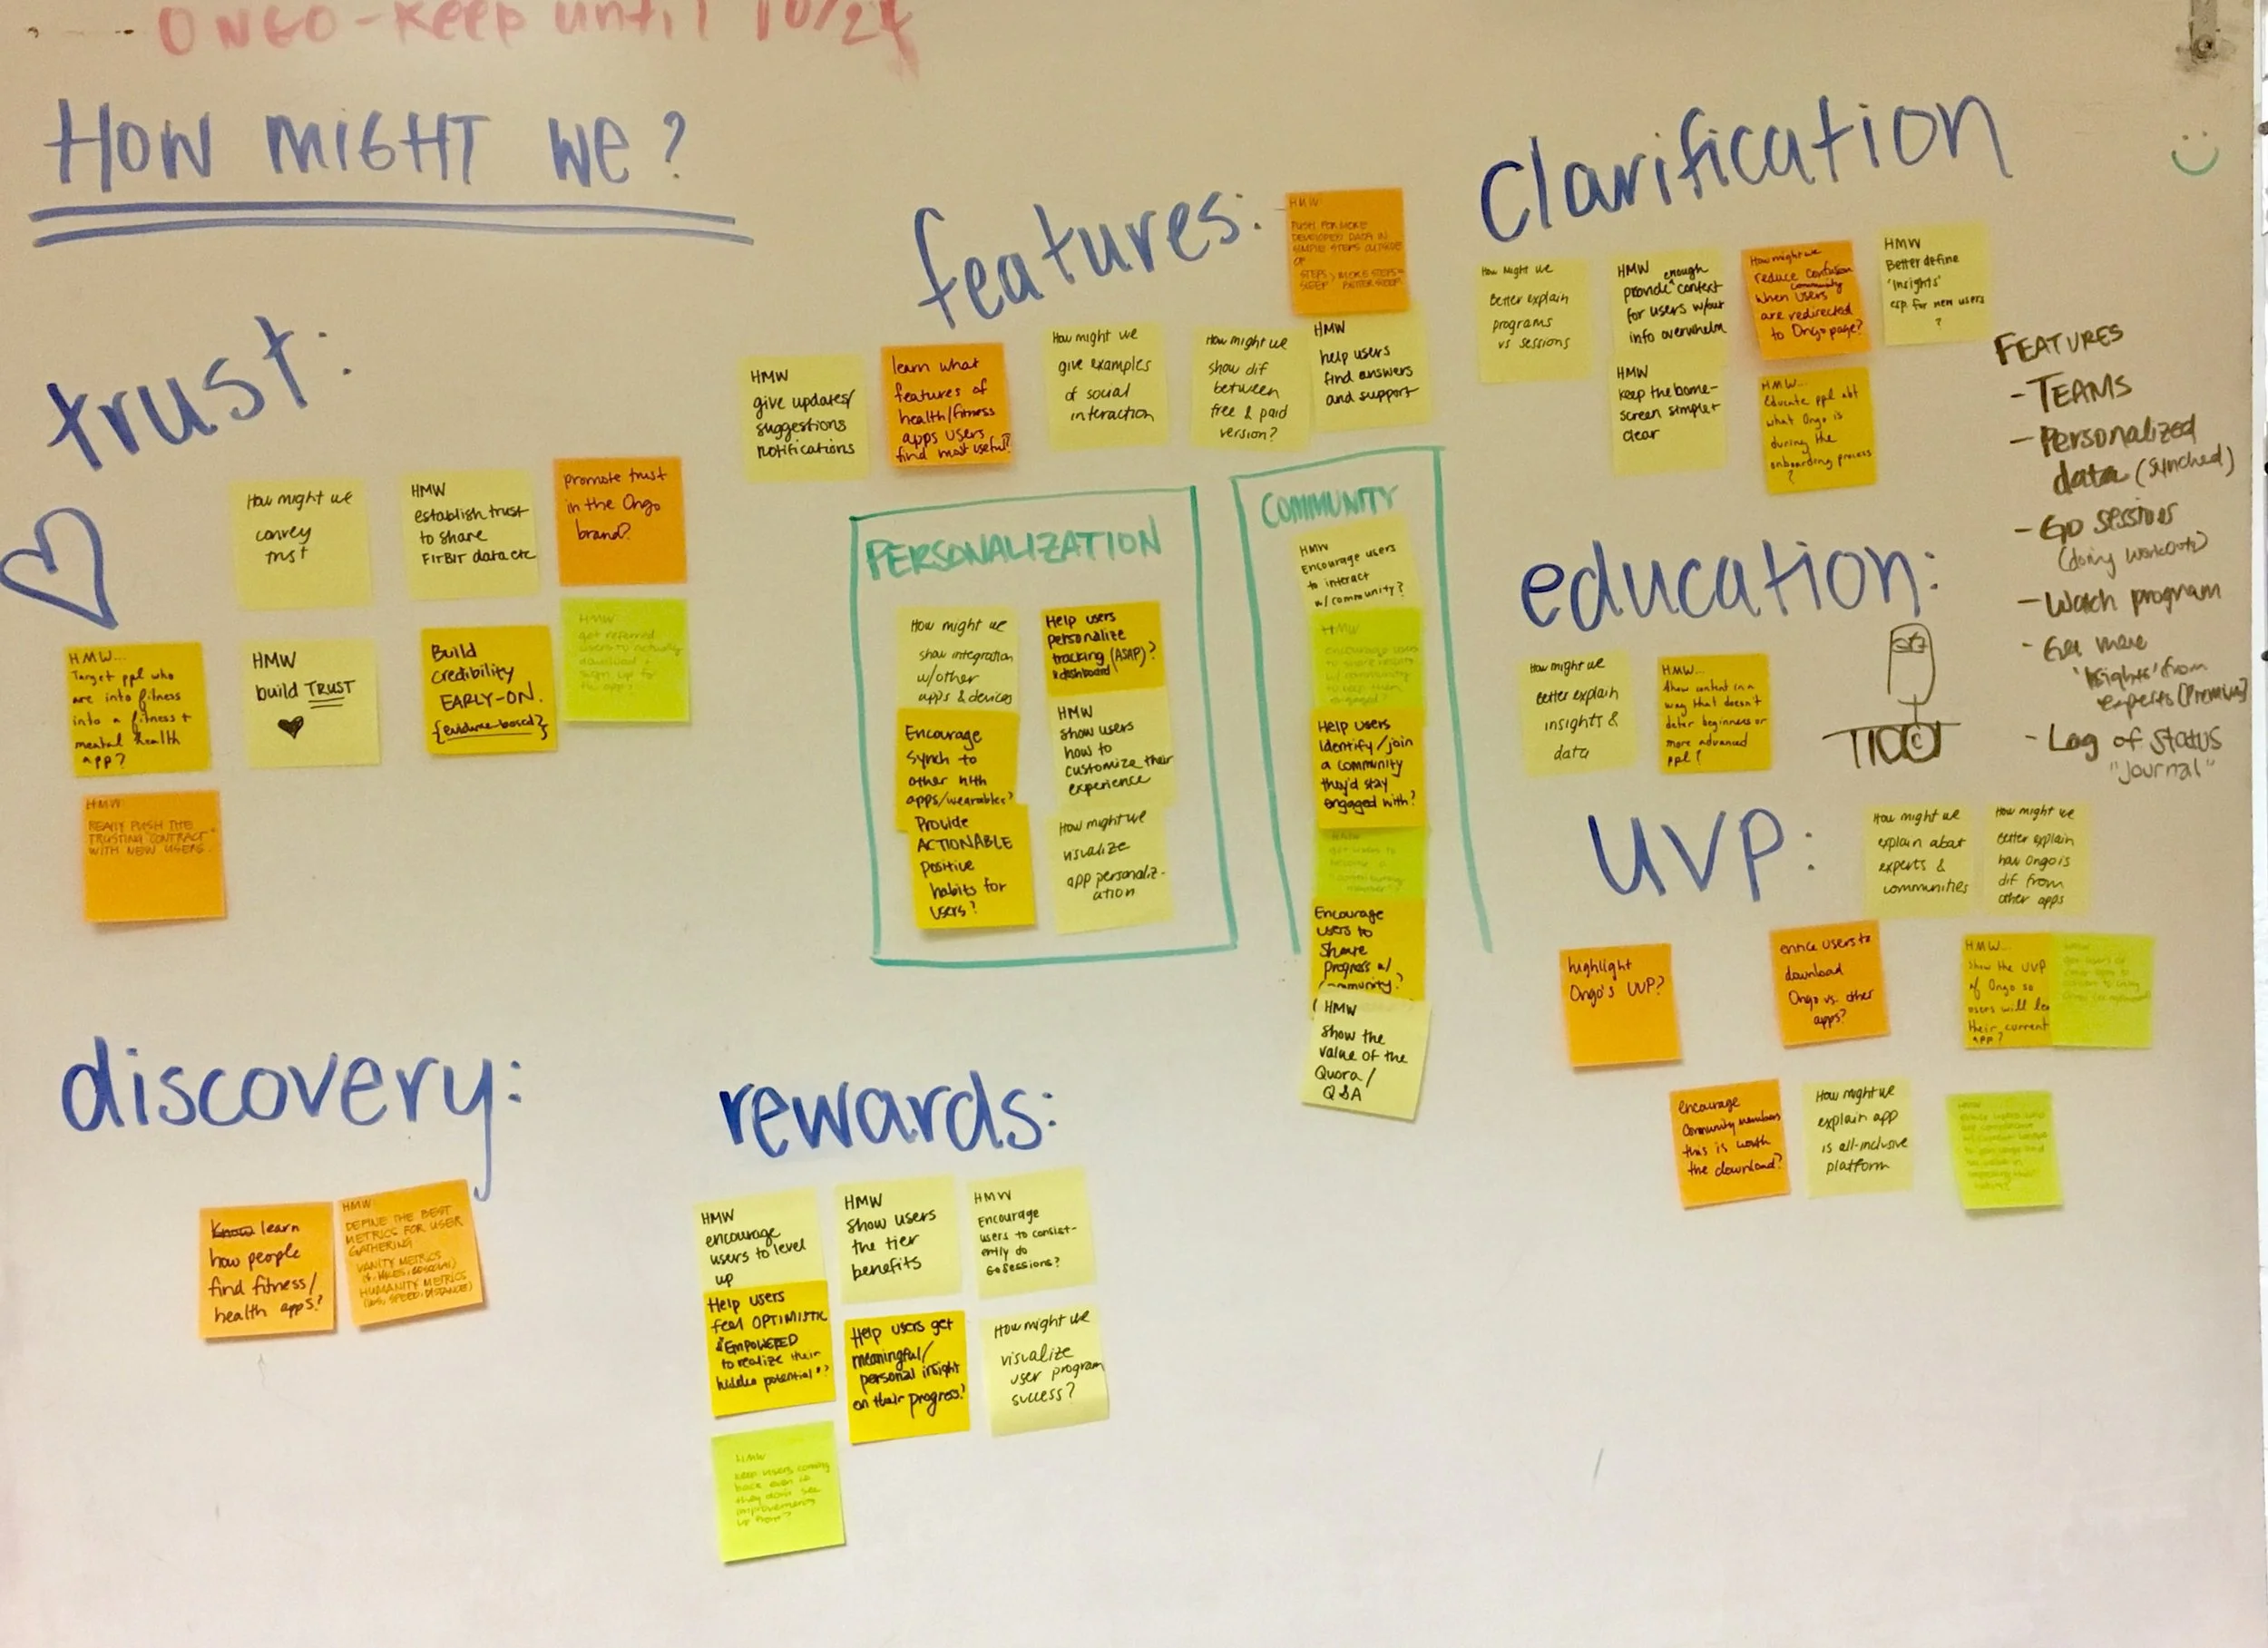 ONGO - Keep until 10/2
HOW MIGHT WE?
trust:
How might we
convey
trust
HMW
establish trust
to share
FITBIT data etc
promote trust
in the Ongo
brand?
HMW...
Target ppl who
are into fitness
into a fitness +
mental health
app?
HMW
build TRUST
Build
credibility
EARLY-ON.
{evidence-based}
HMW...
get referred
users to actually
download +
sign up for
the app?
HMW:
REALLY PUSH THE
TRUSTING "CONTRACT"
WITH NEW USERS.
features:
HMW:
PUSH FOR MORE
DEVELOPED DATA IN
SIMPLE STEPS OUTSIDE
OF
STEPS > MORE STEPS =
SLEEP BETTER SLEEP.
HMW
give updates/
suggestions
notifications
learn what
features of
health/fitness
apps users
find most useful?
How might we
give examples
of social
interaction
How might we
show dif
between
free & paid
version?
HMW
help users
find answers
and support
PERSONALIZATION
How might we
show integration
w/other
apps & devices
Help users
personalize
tracking (ASAP)?
& dashboard
Encourage
synch to
other hlth
apps/wearables?
HMW
show users
how to
customize their
experience
Provide
ACTIONABLE
positive
habits for
users?
How might we
visualize
app personaliz-
ation
COMMUNITY
HMW
Encourage users
to interact
w/ community?
HMW
encourage users
to share results
w/ community
to keep them
engaged?
Help users
identify/join
a community
they'd stay
engaged with?
Encourage
users to
share
progress w/
community?
HMW
Show the
value of the
Quora/
Q&A
Clarification
How might we
Better explain
programs
vs sessions
HMW
provide enough context
for users w/out
info overwhelm
How might we
reduce confusion
when community users
are redirected
to Ongo page?
HMW
Better define
'insights'
esp. for new users
?
HMW
keep the home-
screen simple +
clear
HMW...
Educate ppl abt
what Ongo is
during the
onboarding process
?
FEATURES
- TEAMS
- Personalized
data (synched)
- Go sessions
(doing workouts)
- Watch program
- Get more
'insights' from
experts (Premium)
- Log of status
"journal"
education:
How might we
Better explain
insights &
data
HMW...
show content in a
way that doesn't
deter beginners or
more advanced
ppl?
UVP:
How might we
explain about
experts &
communities
How might we
Better explain
how Ongo is
dif from
other apps
highlight
Ongo's UVP?
entice users to
download
Ongo vs. other
apps?
HMW...
show the UVP
of Ongo so
users will
their current
app?
encourage
community members
this is worth
the download?
How might we
explain app
is all-inclusive
platform
discovery:
Know learn
how people
find fitness/
health apps?
HMW:
DEFINE THE BEST
METRICS FOR USER
GATHERING
VANITY METRICS
HUMANITY METRICS
rewards:
HMW
encourage
users to level
up
HMW
show users
the tier
benefits
HMW
Encourage
users to consist-
ently do
Go Sessions?
Help users
feel OPTIMISTIC
& EMPOWERED
to realize their
hidden potential?
Help users get
meaningful/
personal insight
on their progress?
How might we
visualize
user program
success?
HMW
keep users coming
back even if
they don't see
improvements